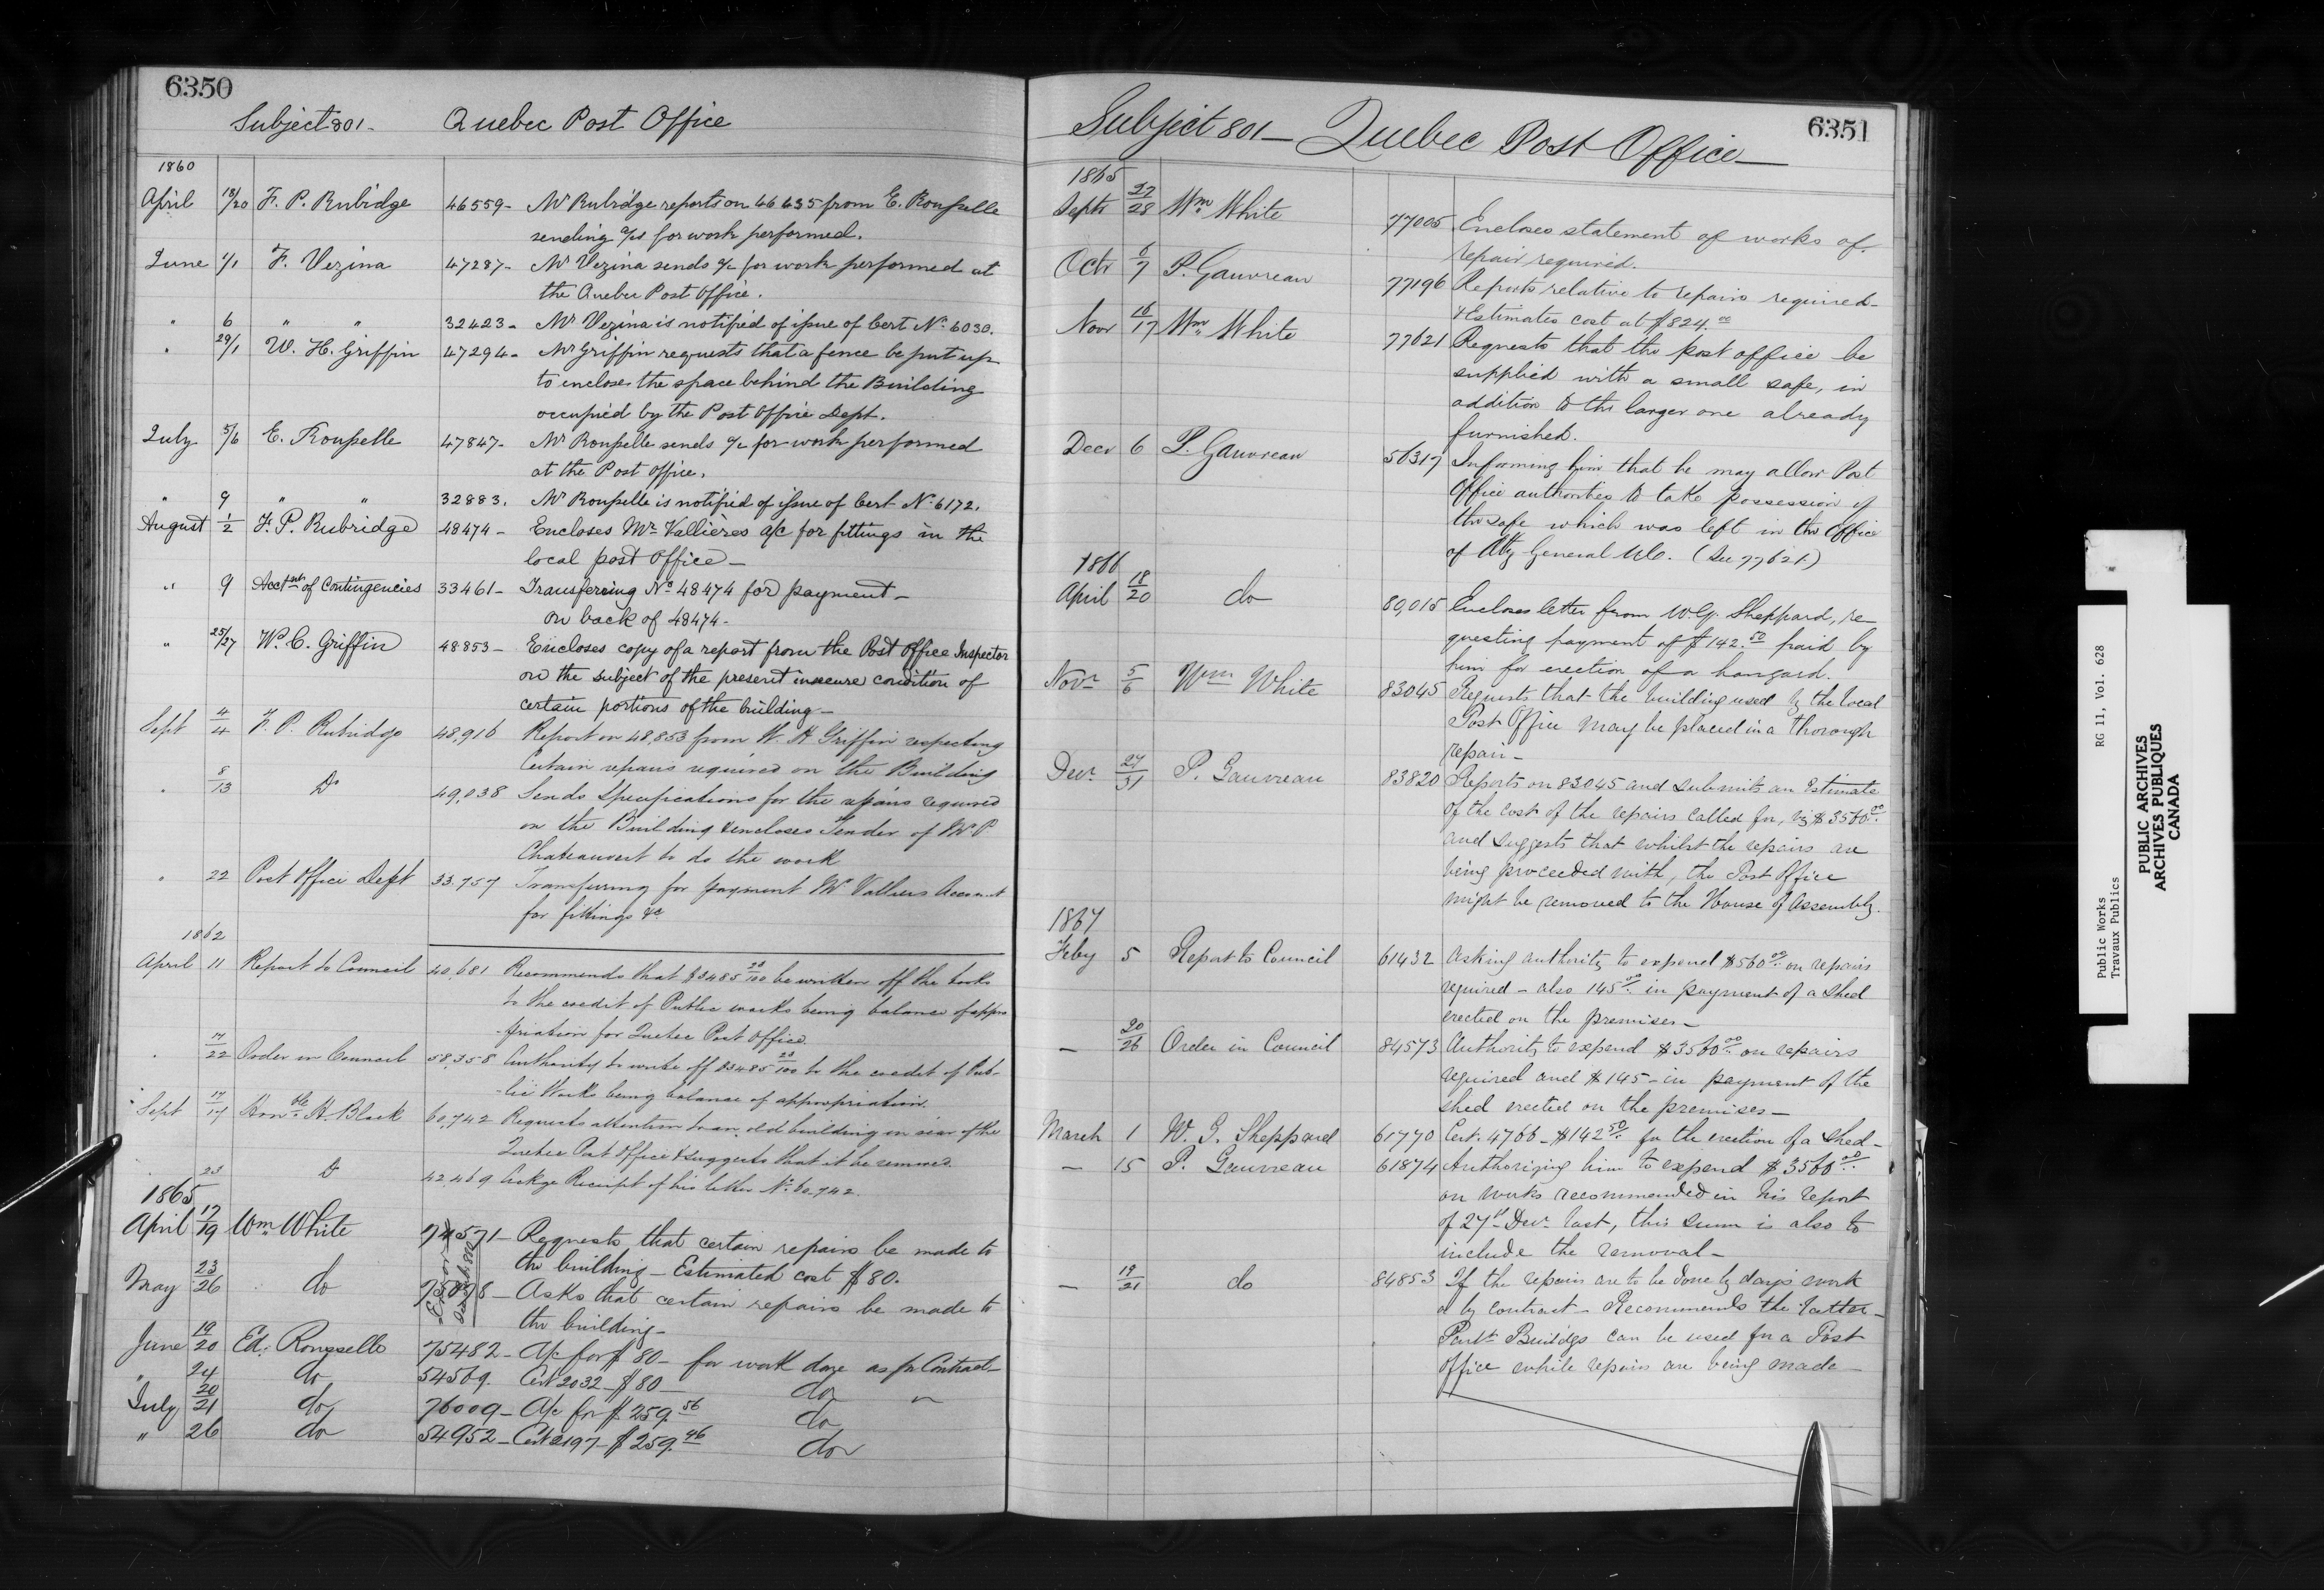 6350
Subject 801- Quebec Post Office
1860
April 18/20 F. P. Rubidge 46559- Mr Rubidge reports on 46435 from E. Rousselle
sending a/cs for work performed.
June 1/1 F. Vezina 47287- Mr Vezina sends a/c for work performed at
the Quebec Post Office.
" 6 " " 32423- Mr Vezina is notified of issue of Cert No. 6030.
" 29/1 W. H. Griffin 47294- Mr Griffin requests that a fence be put up
to enclose the space behind the Building
occupied by the Post Office Dept.
July 5/6 E. Rousselle 47847- Mr Rousselle sends a/c for work performed
at the Post Office.
" 9 " " 32883. Mr Rousselle is notified of issue of Cert No 6172.
August 1/2 F. P. Rubridge 48474- Encloses Mr Vallières a/c for fittings in the
local post Office-
" 9 Acctnt of Contingencies 33461- Transferring No 48474 for payment-
on back of 48474-
" 25/27 W. C. Griffin 48853- Encloses copy of a report from the Post Office Inspector
on the subject of the present insecure condition of
certain portions of the building-
Sept 4/4 F. P. Rubidge 48,916 Report on 48,853 from W. H Griffin respecting
Certain repairs required on the Building
" 8/13 Do 49,038 Sends Specifications for the repairs required
on the Building & encloses Tender of Mr P
Chateauvert to do the work
" 22 Post Office Dept 33.757 Transferring for payment Mr Valliers Account
for fittings &c
1862
April 11 Report to Council 40,681 Recommends that $3485 20/100 be written off the books
to the credit of Public works being balance of appro
-priation for Quebec Post Office.
" 17/22 Order in Council 58,358 Authority to write off $3485 20/100 to the credit of Pub-
-lic Works being balance of appropriation.
" Sept 17/17 Honble H. Black 60,742 Requests attention to an old building in rear of the
Quebec Post Office & suggests that it be removed.
" 23 Do 42,469 Ackge Receipt of his letter No. 60,742.
1865
April 17/19 Wm White 74571- Requests that certain repairs be made to
the building- Estimated cost $80.
May 23/26 do 75078- Asks that certain repairs be made to
the building-
June 19/20 Ed: Rousselle 75482- A/c for $80- for work done as pr Contract-
" 24 do 54569. Cert 2032- $80- do "
July 20/21 do 76009- A/c for $259.56 do
" 26 do 54952- Cert 2197- $259.46 do
6351
Subject 801- Quebec Post Office-
1865
Septr 27/28 Wm White 77005 Encloses statement of works of
repair required.
Octr 6/7 P. Gauvreau 77196 Reports relative to repairs required-
& Estimates cost at $824.00
Novr 16/17 Wm White 77621 Requests that the post office be
supplied with a small safe, in
addition to the larger one already
furnished.
Decr 6 P. Gauvreau 56317 Informing him that he may allow Post
Office authorities to take possession of
the safe which was left in the Office
of Atty General U.C. (See 77621.)
1866
April 18/20 do 80,015 Encloses letter from W.G. Sheppard, re-
questing payment of $142.50 paid by
him for erection of a hangard.
Novr 5/6 Wm White 83045 Requests that the building used by the local
Post Office may be placed in a thorough
repair-
Decr 27/31 P. Gauvreau 83820 Reports on 83045 and submits an Estimate
of the cost of the repairs called for, viz $3560.00
and suggests that whilst the repairs are
being proceeded with, the Post Office
might be removed to the House of Assembly.
1867
Feby 5 Report to Council 61432 Asking authority to expend $560.00 on repairs
required- also 145.00 in payment of a shed
erected on the premises-
- 20/26 Order in Council 84573 Authority to expend $3560.00 on repairs
required and $145- in payment of the
shed erected on the premises-
March 1 W. G. Sheppard 61770 Cert. 4766- $142.50 for the erection of a shed-
- 15 P. Gauvreau 61874 Authorizing him to expend $3560.00
on works recommended in his report
of 27th Decr last, this sum is also to
include the removal-
- 19/21 do 84853 If the repairs are to be done by day's work
or by contract- Recommends the latter-
Parlt Buildgs can be used for a Post
Office while repairs are being made-
Public Works RG 11, Vol. 628
Travaux Publics
PUBLIC ARCHIVES
ARCHIVES PUBLIQUES
CANADA